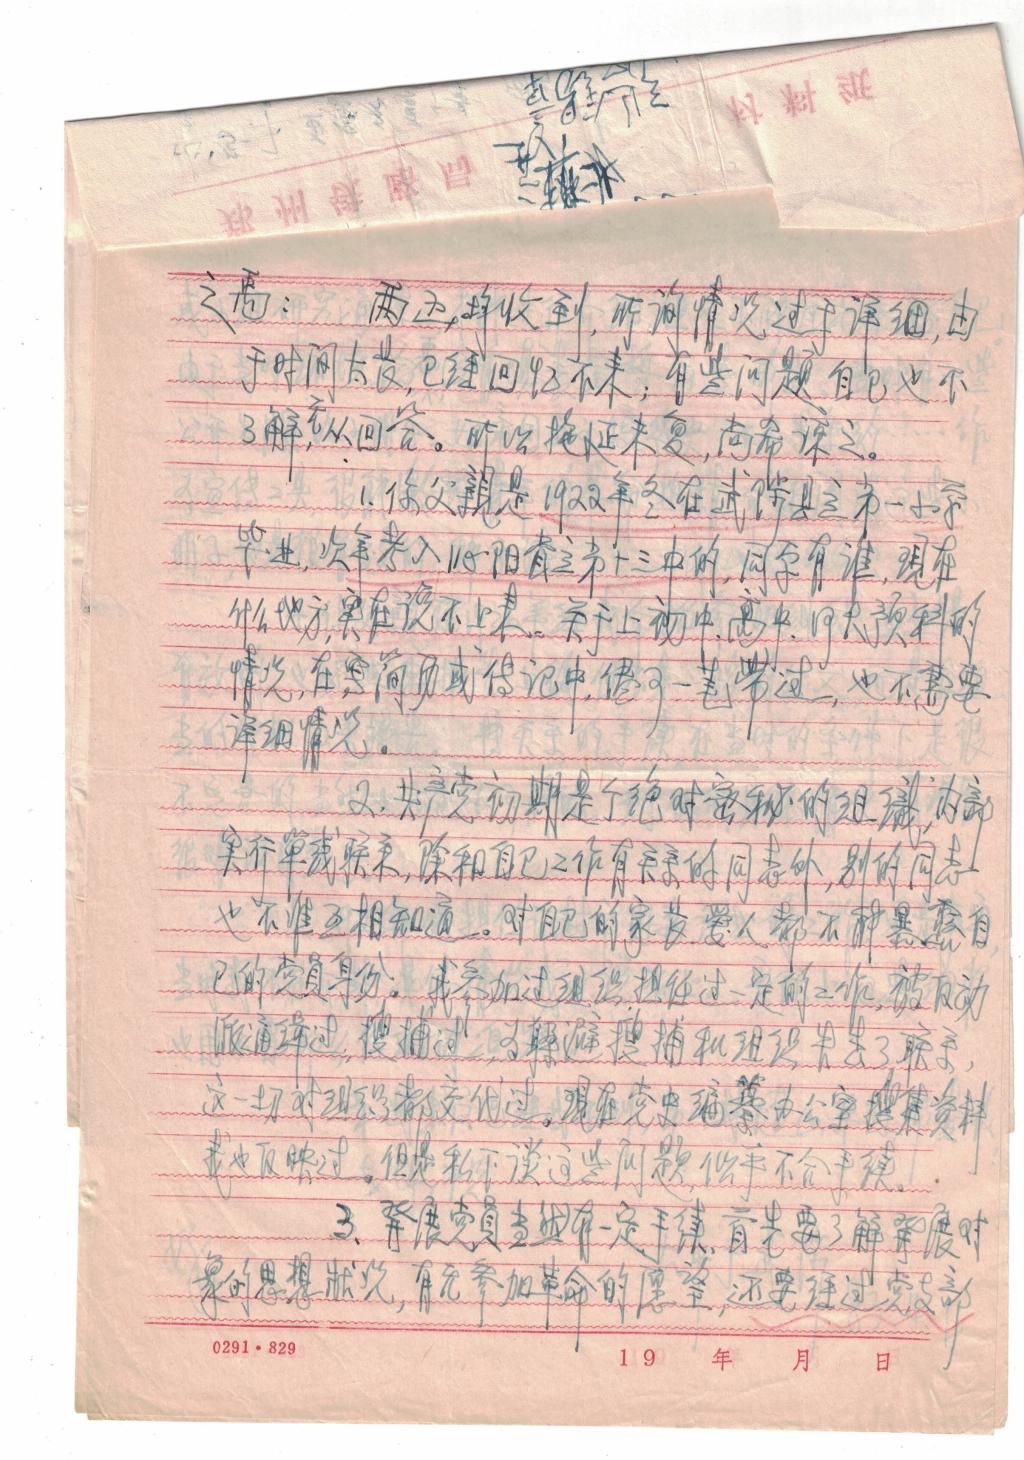 之禹：  两函，均收到，所询情况过于详细，由
于时间太长，已经回忆不来；有些问题自己也不
了解，无从回答。所以拖延来复，尚希谅之。
1. 你父親是1922年冬在武陟县立第一小学
毕业，次年考入沁阳省立第十三中的，同学有谁，现在
什么地方，实在说不上来。关于上初中、高中、河大预科的
情况，在写简历或传记中，仅可一笔带过，也不需要
详细情况。
2、共产党初期是个绝对密秘的组織，内部
实行单线联系，除和自己工作有关系的同志外，别的同志
也不准互相知道。对自己的家长、爱人都不能暴露自
己的党员身份。我参加过组织担任过一定的工作，被反动
派通缉过，搜捕过，为躲避搜捕和组织失去了联系，
这一切对组织都交代过。现在党史编纂办公室搜集资料
我也反映过。但是私下谈这些问题，似乎不合手续。
3、發展党员当然有一定手续，首先要了解發展对
象的思想狀况，有无参加革命的愿望，还要经过党支部
0291·829
19 年 月 日